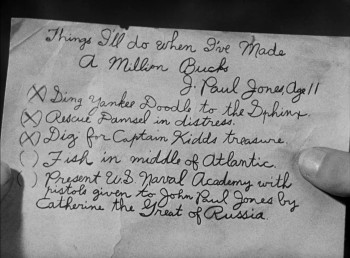 Things I'll do when I've Made
A Million Bucks
J. Paul Jones, Age 11
(X) Sing Yankee Doodle to the Sphinx.
(X) Rescue Damsel in distress.
(X) Dig for Captain Kidds treasure.
( ) Fish in middle of Atlantic.
( ) Present U.S. Naval Academy with
pistols given to John Paul Jones by
Catherine the Great of Russia.